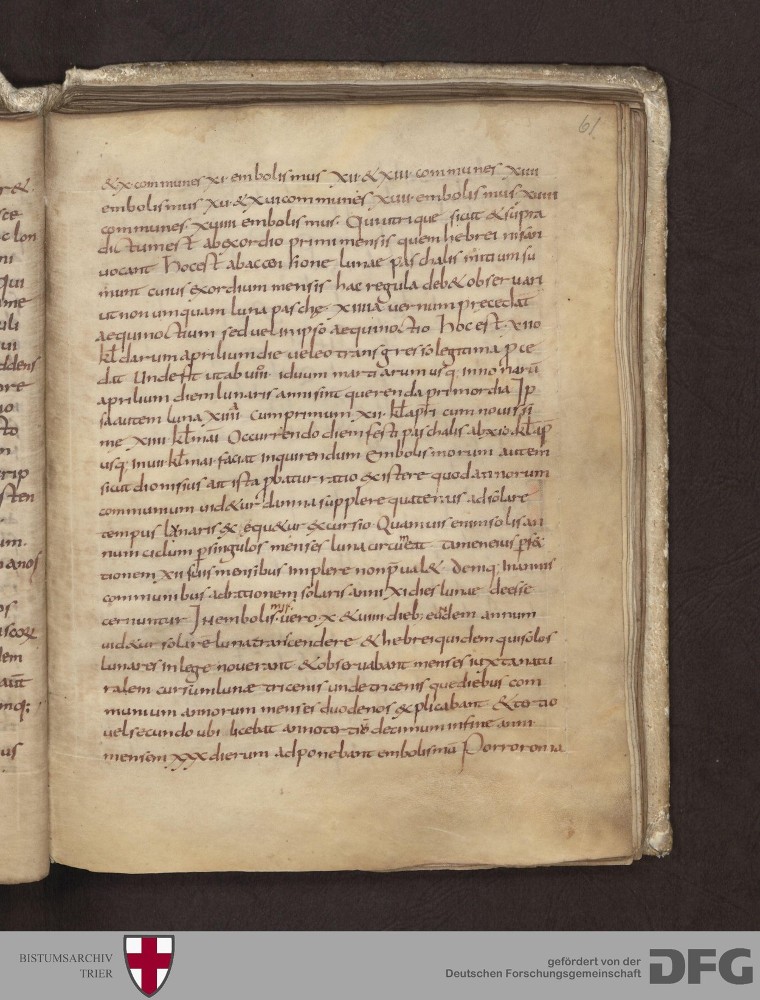 61
&x· communes xi· embolismus xii· & xiii· communes xiiii
embolismus xv· & xvi communes xvii· embolismus· xviii
communes· xviiii embolismus· Qui utrique sicut & supra
dictum est ab exordio primi mensis quem hebrei nisan
uocant hoc est ab accensione lunae paschalis initium su
munt cuius exordium mensis hac regula deb& obseruari
ut non umquam luna paschę xiiiia uernum precedat
aequinoctium sed uel in ipso aequinoctio hoc est· xiio
kl darum aprilium die uel eo transgresso legitima p ce
dat Unde fit ut ab uiii· iduum martiarum usq; in nonarū
aprilium diem lunaris anni sint querenda primordia Ip
sa autem luna xiiii cum primum xii· kl apri cum nouissi
me xiiii kl mai Occurrendo diem festi paschalis ab xi· kl ap
usq; in uii kl mai faciat inquirendum Embolismorum autem
sicut dionisius ait ista pbatur ratio existere quod annorum
communium uid&ur damna supplere quatenus ad solare
tempus lunaris & equ&ur excursio Quamuis enim solis an
num ciclum p singulos menses luna circumeat tamen eius pfec
tionem xii suis mensibus implere non pual& demq; in annis
communibus ad rationem solaris anni xi dies lunae deesse
cernuntur In embolismis uero x & uiiii dieb; eundem annum
uid&ur solare luna transcendere & hebrei quidem qui solos
lunares in lege nouerant & obseruabant menses iuxta natu
ralem cursum lunae tricenis undetricenis que diebus com
munium annorum menses duodenos explicabant & tertio
uel secundo ubi licebat anno tertiū decimum in fine anni
mensem xxx dierum adponebant embolismū Porro roma
BISTUMSARCHIV
TRIER
gefördert von der
Deutschen Forschungsgemeinschaft
DFG